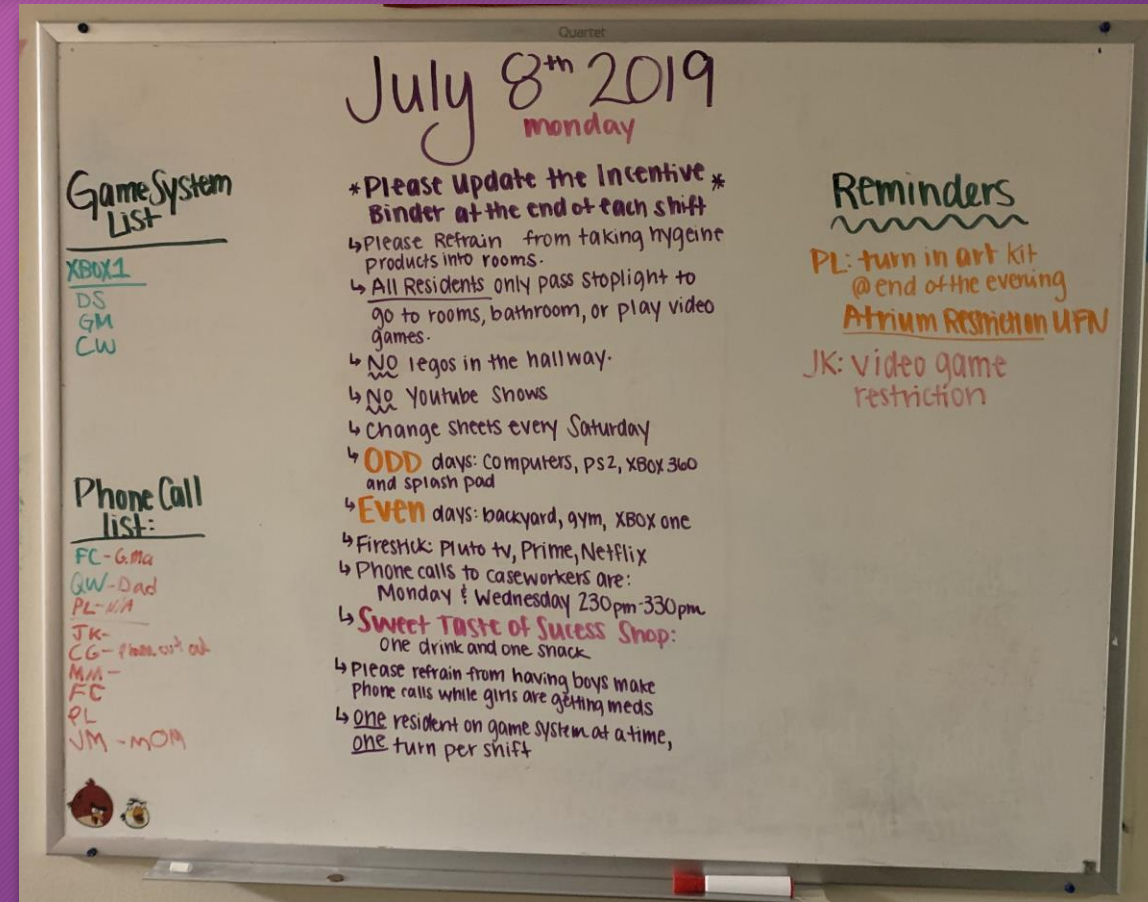 Quartet
July 8th 2019
monday
Game System
List
XBOX1
DS
GM
CW
Phone Call
list:
FC-G.ma
QW-Dad
PL-N/A
JK-
CG-
MM-
FC
PL
JM-MOM
*Please Update the Incentive *
Binder at the end of each shift
↳Please Refrain from taking hygeine
products into rooms.
↳All Residents only pass stoplight to
go to rooms, bathroom, or play video
games.
↳NO legos in the hallway.
↳NO Youtube Shows
↳Change sheets every Saturday
↳ODD days: Computers, PS2, XBOX 360
and splash pad
↳Even days: backyard, gym, XBOX one
↳Firestick: Pluto tv, Prime, Netflix
↳Phone calls to caseworkers are:
Monday & Wednesday 230pm-330pm
↳Sweet Taste of Sucess Shop:
one drink and one snack
↳Please refrain from having boys make
phone calls while girls are getting meds
↳one resident on game system at a time,
one turn per shift
Reminders
PL: turn in art kit
@ end of the evening
Atrium Restriction UFN
JK: video game
restriction